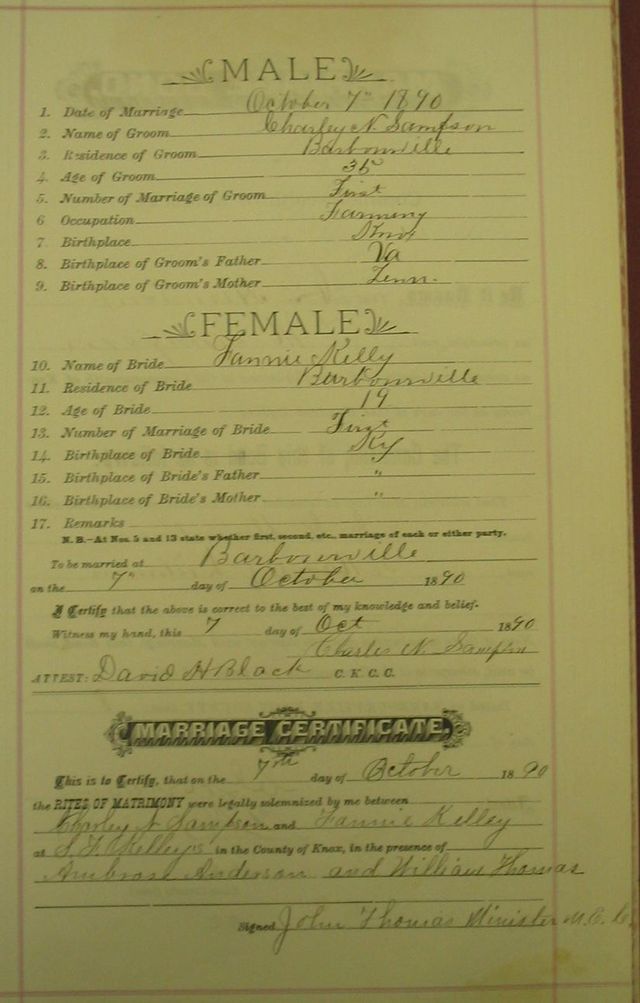 MALE
1. Date of Marriage October 7" 1890
2. Name of Groom Charley N. Sampson
3. Residence of Groom Barbourville
4. Age of Groom 35
5. Number of Marriage of Groom First
6 Occupation Farming
7 Birthplace Knox
8. Birthplace of Groom's Father Va
9. Birthplace of Groom's Mother Tenn.
FEMALE
10. Name of Bride Fannie Kelly
11. Residence of Bride Barbourville
12. Age of Bride 19
13. Number of Marriage of Bride First
14. Birthplace of Bride Ky
15. Birthplace of Bride's Father "
16. Birthplace of Bride's Mother "
17. Remarks
N. B.—At Nos. 5 and 13 state whether first, second, etc., marriage of each or either party.
To be married at Barbourville
on the 7" day of October 1890
I Certify that the above is correct to the best of my knowledge and belief.
Witness my hand, this 7 day of Oct 1890
Charles N. Sampson
ATTEST: David H Black C. K. C. C.
MARRIAGE CERTIFICATE.
This is to Certify, that on the 7th day of October 1890
the RITES OF MATRIMONY were legally solemnized by me between
Charley N Sampson and Fannie Kelley
at Kelley's in the County of Knox, in the presence of
Ambrose Anderson and William Thomas
Signed John Thomas Minister M. E.